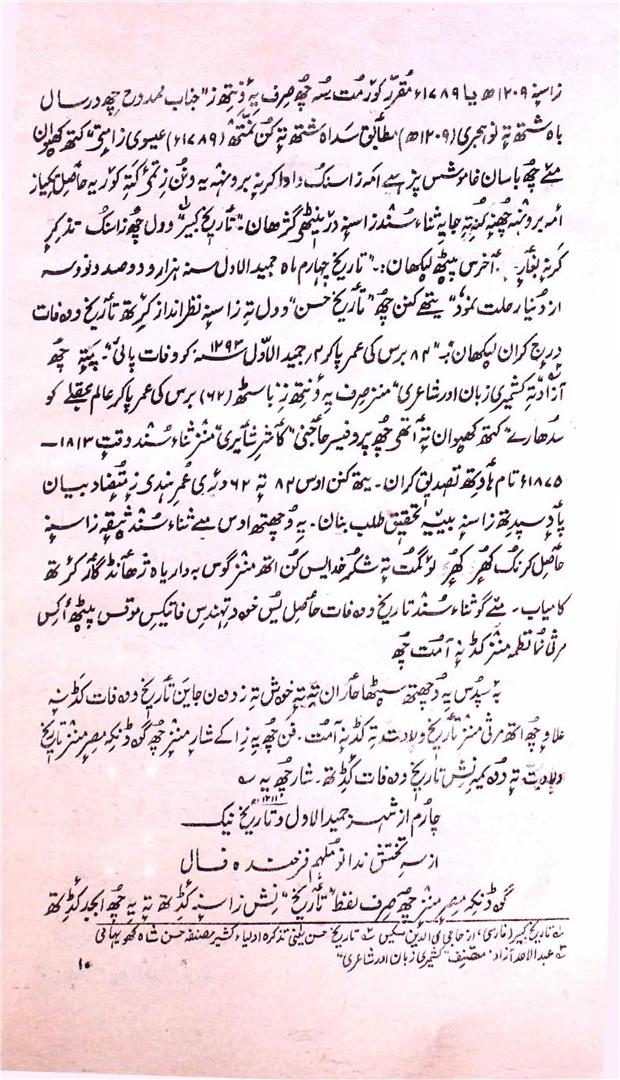 زاسنہٕ ۱۲۰۹ھ یا ۱۷۸۹ء مقرّر کوٚرمُت سُہ چھُ صِرف یہِ وُنِتھ ز "جناب ممدوح چھِ درسال
باہ شتھ تہٕ نو ہجری (۱۲۰۹ھ) مطابق سداہ شتھ تہٕ کُن نَمتھ (۱۷۸۹ء) عیسوی زامتۍ" کتھ کھیوان
میٚ چھُ باسان خاموشس پزِ ہے امہ زاسنُک داوا کرنہٕ برونہہ یہ ونُن زِ تمۍ کتہِ کوٚر یہ حاصل یکیاز
أمہ برونٹھ چھُنہٕ کُنہِ تہِ جایہِ ثناء سُند زاسنہٕ در پیٹھۍ گژھان۔ "تأریخ کبیر" وول چھُ زاسنُک تذکرِ
کرنہٕ بغأر۔ آخرس پیٹھ لیکھان:۔ "تاریخ چہارم ماہ جمید الاول سنہ ہزار و دوصد و نود و سہ
از دُنیا رحلت نمود" یتھے کنۍ چھُ "تأریخ حسن" وول تہِ زاسنہٕ نظرانداز کٔرِتھ تأریخ وفات
درج کران لیکھان زِ۔ "۸۴ برس کی عمر پاکر ۴ر جمید الاوّل ۱۲۹۳ سنہ کو وفات پائی"۔ پتہٕ چھُ
آزاد تہِ کشمیری زبان اور شاعری" منز صِرف یہِ وُنِتھ زِ "باسٹھ (۶۲) برس کی عمر پاکر عالم عقبیٰ کو
سدھارے" کتھ کھیوان تہٕ أتھۍ چھُ پروفیسر حاجنی "کأشرِ شأیری" منز ثناء سُند وقت ۱۸۱۳۔
۱۸۷۵ء تام ہأوِتھ تصدیق کران۔ یتھ کنۍ اوس ۸۴ تہٕ ۶۲ ورۍ عُمرِ ہندۍ زٕ متضاد بیان
پأدٕ سپدِتھ زاسنہٕ بییہِ تحقیق طلب بنان۔ یہِ وُچھتھ اوس میٚ ثناء سُند ثیقہٕ زاسنہٕ
حاصل کرنُک کھُر کھُر لوٚگمُت تہٕ شکر خدایس کُن اتھ منز گوس بہ دار یاہ ژھانڈ گأر کٔرِتھ
کامیاب۔ میٚ گو ثناء سُند تاریخ وفات حاصل یُس خود تہندس فاتیکس موقس پیٹھ اُکِس
مرثی نُما نظمہِ منز کڈنہٕ آمت چھُ
بہٕ سپدُس یہ وُچھتھ سیٹھا حأران تہٕ تہٕ خوش تہِ ز دون جاین تأریخ وفات کڈنہٕ
علاوٕ چھُ اتھ مرثی منز تأریخ ولادت تہِ کڈنہٕ آمت۔ فن چھُ یہ زِ اکے شار منز چھُ گوڈنکہِ مصرٕ منز تأریخ
ولادت تہٕ دوٚیمہِ نش تأریخ وفات کڈِتھ۔ شار چھُ یہ ؎
چارم از شہرِ جمید الاول و تاریخ نیک
۱۲۱۱
از سہ تحتشن ندا نو ملہم فرخندہ فال
گوڈنکہِ مصرٕ منز چھُ صِرف لفظ "تأریخ" نِش زاسنہٕ کڈِتھ تہٕ یہِ چھُ ابجد کڈِتھ
؎ تاریخ کبیر (فارسی) از حاجی محی الدین مسکین ؎ تاریخ حسن یعنی تذکرہ اولیاء کشمیر مصنفہ حسن شاہ کھویہامی
؎ عبدالاحد آزاد، مصنف "کشمیری زبان اور شاعری"
۱۰